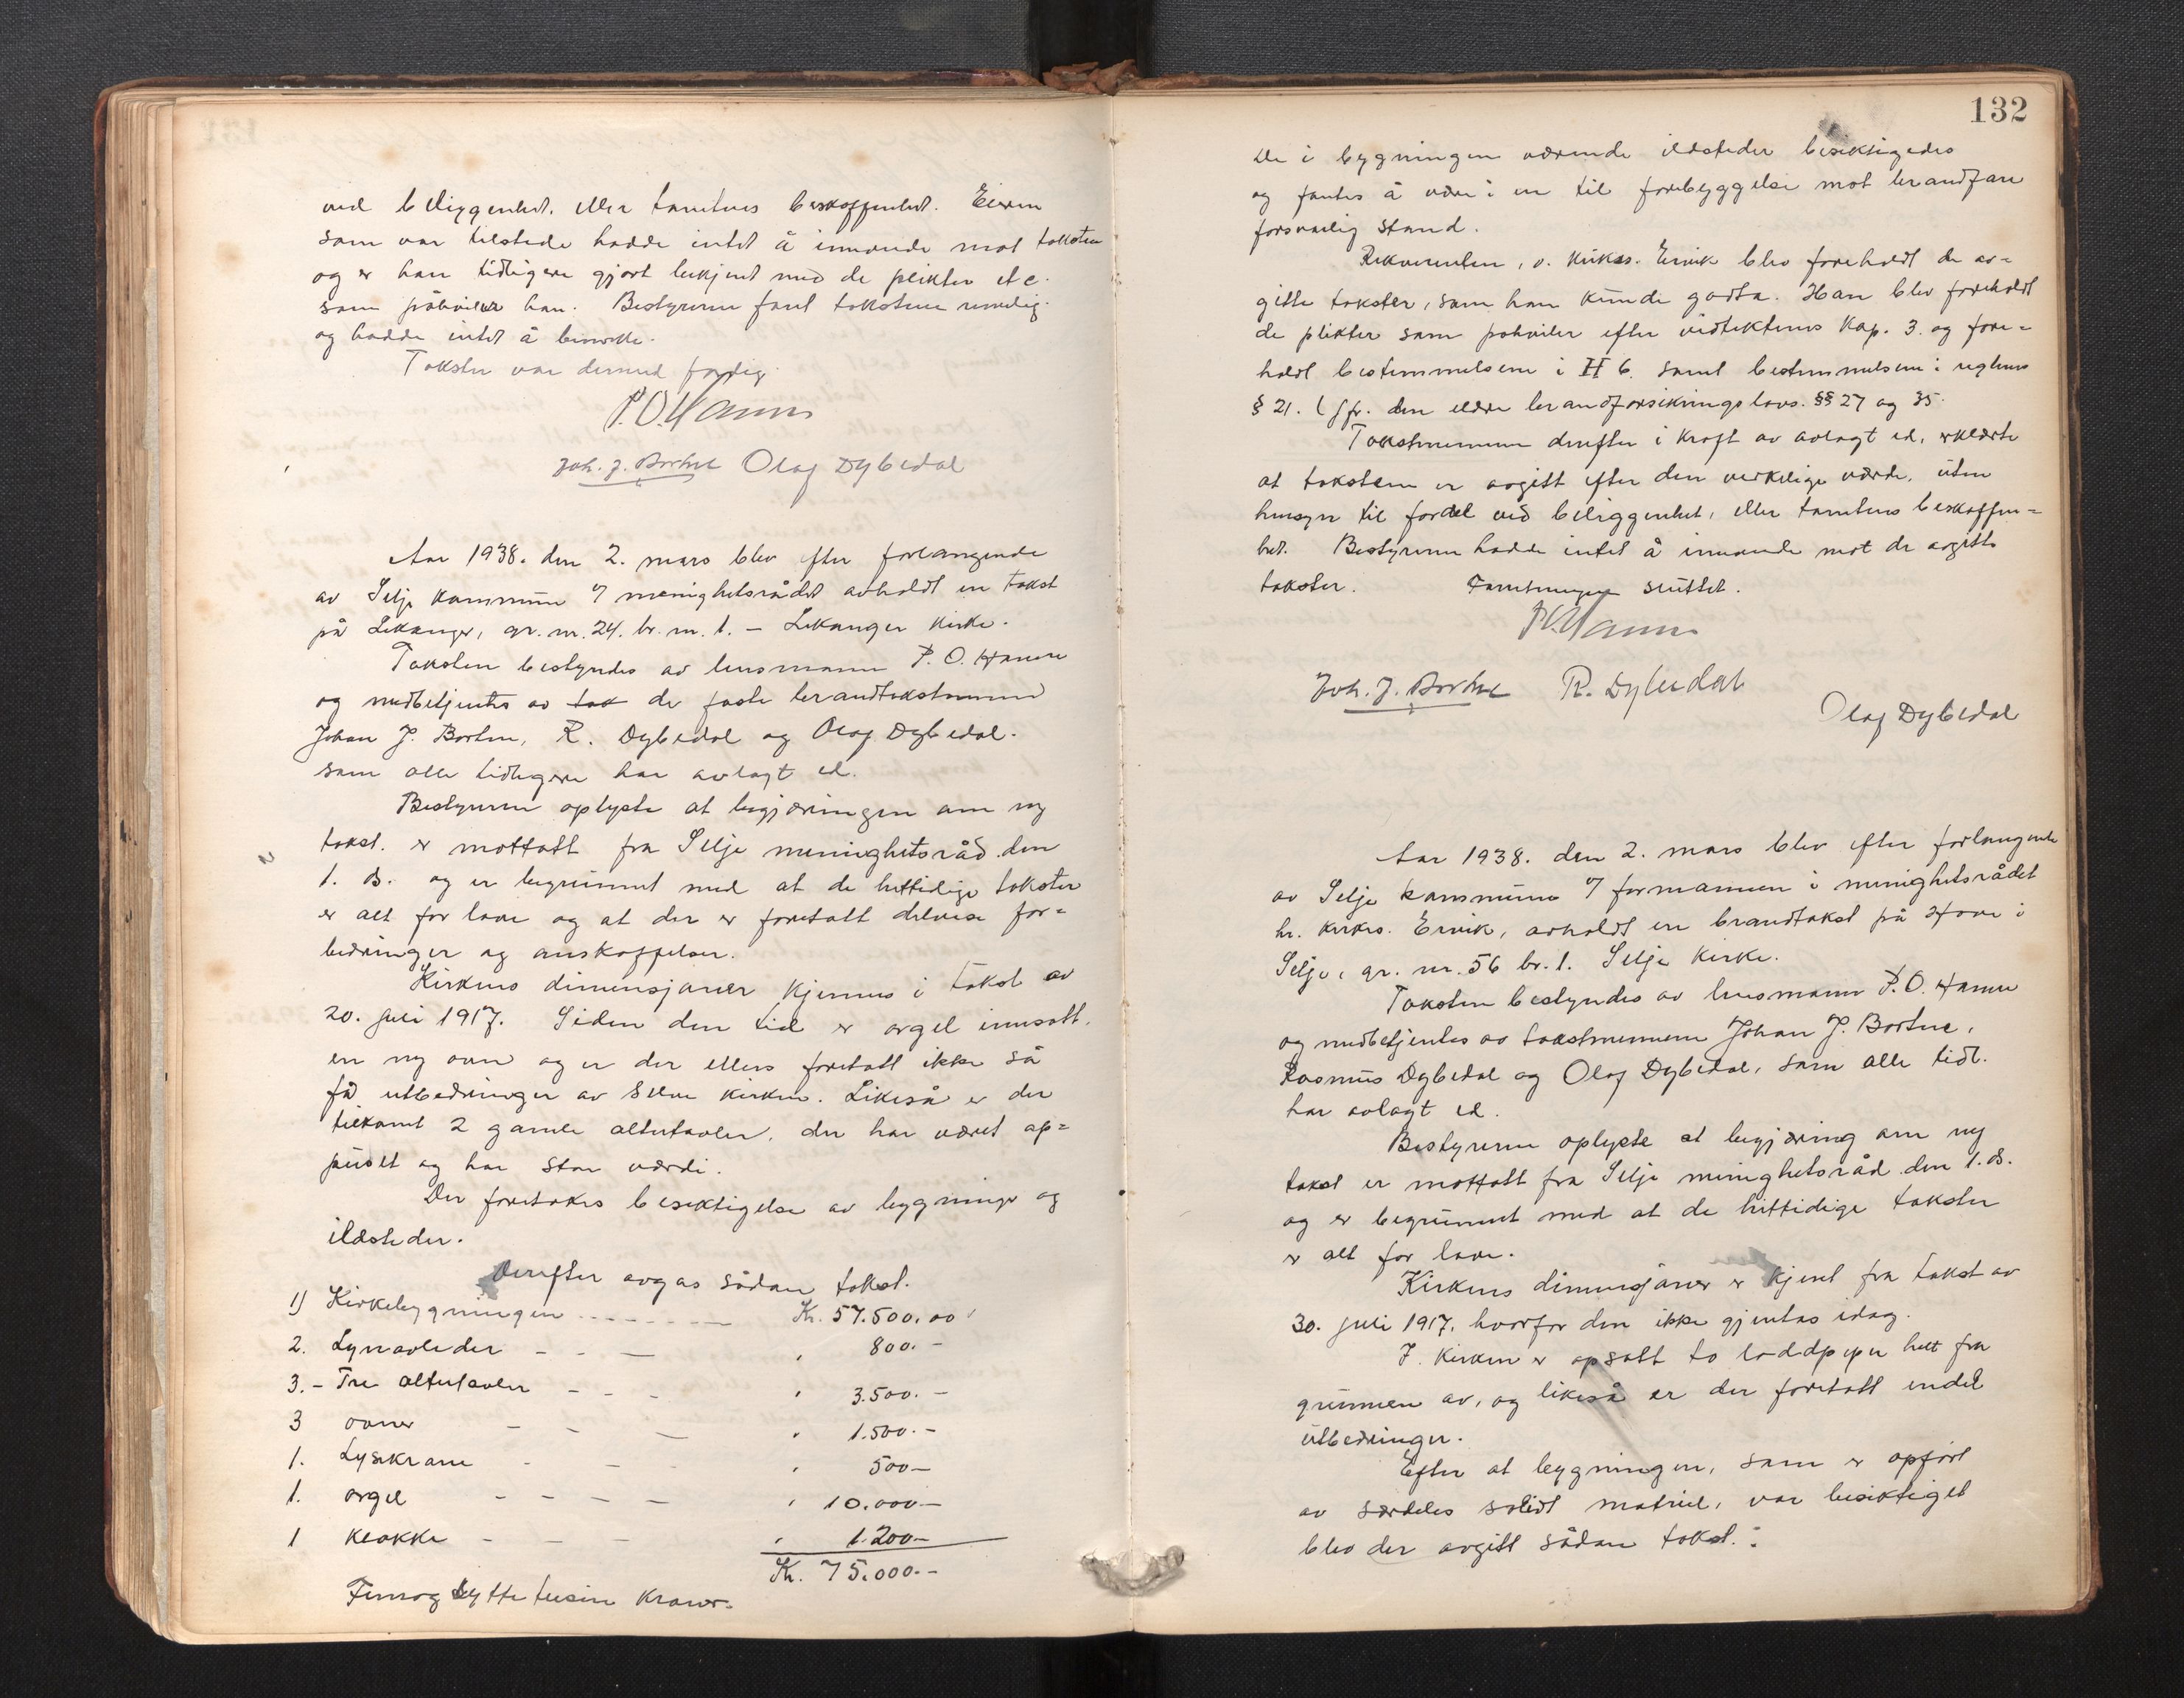 ved beliggenhet, eller tomtens beskaffenhet. Eieren
som var tilstede hadde intet å innvende mot taksten
og er han tidligere gjort bekjent med de plikter etc.
som påhviler han. Bestyreren fant takstene rimelig
og hadde intet å bemerke.
Taksten var dermed ferdig.
P.O. Hamre
Joh. J. Bortne Olav Dybedal
Aar 1938. den 2. mars blev efter forlangende
av Selje kommune v/ menighetsrådet avholdt en takst
på Lekanger, gr. nr. 24. br. nr. 1. – Lekanger kirke.
Taksten bestyredes av lensmann P. O. Hamre
og medbetjentes av tak de faste brandtakstmenn
Johan J. Bortne, R. Dybedal og Olav Dybedal.
som alle tidligere har avlagt ed.
Bestyreren oplyste at begjæringen om ny
takst. er mottatt fra Selje menighetsråd den
1. ds. og er begrunnet med at de hittidige takster
er alt for lave og at der er foretatt delvise for=
bedringer og anskaffelser.
Kirkens dimensjoner kjennes i takst av
20. juli 1917. Siden den tid er orgel innsatt,
en ny ovn og er der ellers foretatt ikke så
få utbedringer av selve kirken. Likeså er der
tilkomt 2 gamle altertavler, der har været op=
pusset og har stor værdi.
Der foretokes besiktigelse av bygninger og
ildsteder.
Derefter avgas sådan takst.
1) Kirkebygningen - - - - Kr. 57.500,00
2. Lynavleder - - — " 800.–
3.- Tre altertavler - - - " 3.500.–
3 ovner - - — " 1.500.–
1. Lysekrone - - - " 500–
1. orgel - - - — " 10.000–
1 klokke - - — " 1.200–
Kr. 75.000.–
Femogsyttitusen kroner.
132
De i bygningen værende ildsteder besiktigedes
og fantes å være i en til forebyggelse mot brandfare
forsvarlig stand.
Rekvirenten, v. kirkes. Ervik blev foreholdt de av=
gitte takster, som han kunde godta. Han blev foreholdt
de plikter som påhviler efter vedtektenes Kap. 3. og fore=
holdt bestemmelsene i H 6. samt bestemmelsene i reglenes
§ 21. (jfr. den eldre brandforsikringslovs. §§ 27 og 35.
Takstmennene derefter i kraft av avlagt ed, erklærte
at takstene er avgitt efter den verkelige værde, uten
hensyn til fordel ved beliggenhet, eller tomtens beskaffen=
het. Bestyreren hadde intet å innvende mot de avgitte
takster. Forretningen sluttet.
P.O. Hamre
Joh. J. Bortne R. Dybedal
Olav Dybedal
Aar 1938. den 2. mars blev efter forlangende
av Selje kommune v/ formannen i menighetsrådet
hr. kirkes. Ervik, avholdt en brandtakst på Hove i
Selje, gr. nr. 56 br. 1. Selje Kirke.
Taksten bestyredes av lensmann P. O. Hamre
og medbetjentes av takstmennene Johan J. Bortne,
Rasmus Dybedal og Olav Dybedal, som alle tidl.
har avlagt ed.
Bestyreren oplyste at begjæring om ny
takst er mottatt fra Selje menighetsråd den 1. ds.
og er begrunnet med at de hittidige takster
er alt for lave.
Kirkens dimensjoner er kjent fra takst av
30. juli 1917. hvorfor den ikke gjentas idag.
I. kirken er opsatt to loddpiper helt fra
grunnen av, og likeså er der foretatt endel
utbedringer.
Efter at bygningen, som er opført
av særdeles solidt matriel, var besiktiget
blev der avgitt sådan takst.: